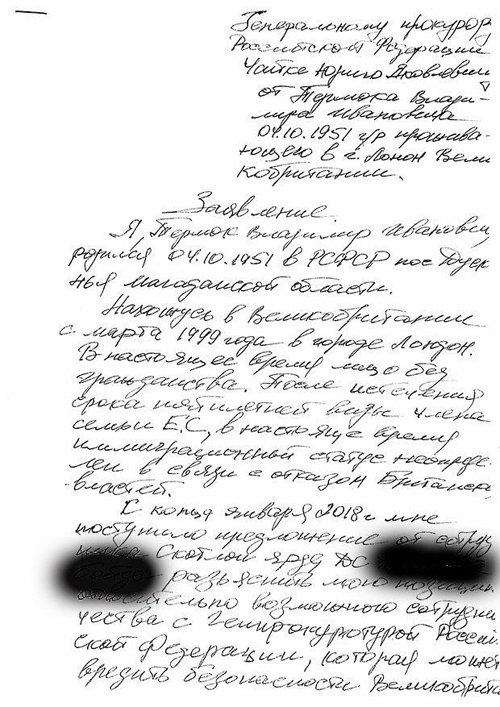 Генеральному прокурору
Российской Федерации
Чайке Юрию Яковлевичу
от Термока Влади-
мира Ивановича
04.10.1951 г/р прожива-
ющего в г. Лонон Вели
кобритании.
Заявление.
Я, Термок Владимир Иванович,
родился 04.10.1951 в РСФСР пос
нья Магаданской области.
Нахожусь в Великобритании
с марта 1999 года в городе Лондон.
В настоящее время лицо без
гражданства. После истечения
срока пятилетней визы члена
семьи ЕС, в настоящее время
иммиграционный статус неопреде-
лен в связи с отказом Британских
властей.
С конца января 2018 г мне
поступило предложение от сотруд
Скотлой ярду ДС
разъяснить мою позицию
относительно возможного сотрудни
чества с Генпрокуратурой Россий
ской Федерации, которая может
вредить безопасности Великобрита